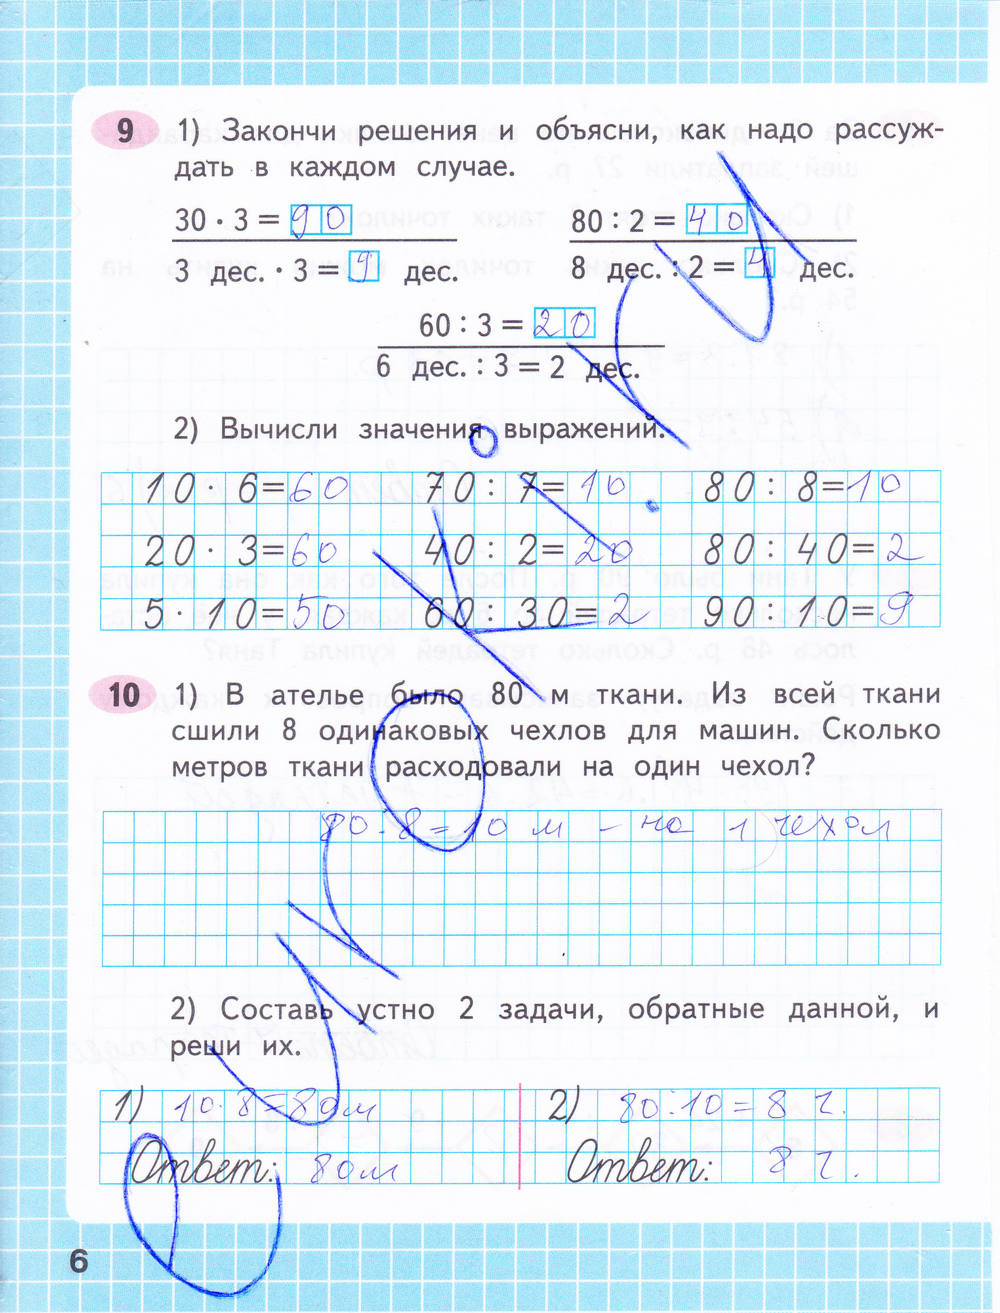 9 1) Закончи решения и объясни, как надо рассуж-
дать в каждом случае.
30 · 3 = 90 80 : 2 = 40
3 дес. · 3 = 9 дес. 8 дес. : 2 = 4 дес.
60 : 3 = 20
6 дес. : 3 = 2 дес.
2) Вычисли значения выражений.
10 · 6=60 70 : 7=10 80 : 8=10
20 · 3=60 40 : 2=20 80 : 40=2
5 · 10 50 60 : 30 2 90 : 10=9
10 1) В ателье было 80 м ткани. Из всей ткани
сшили 8 одинаковых чехлов для машин. Сколько
метров ткани расходовали на один чехол?
80:8=10 м - на 1 чехол
2) Составь устно 2 задачи, обратные данной, и
реши их.
1) 10·8=80м 2) 80:10=8 г.
Ответ: 80м Ответ: 8 г.
6